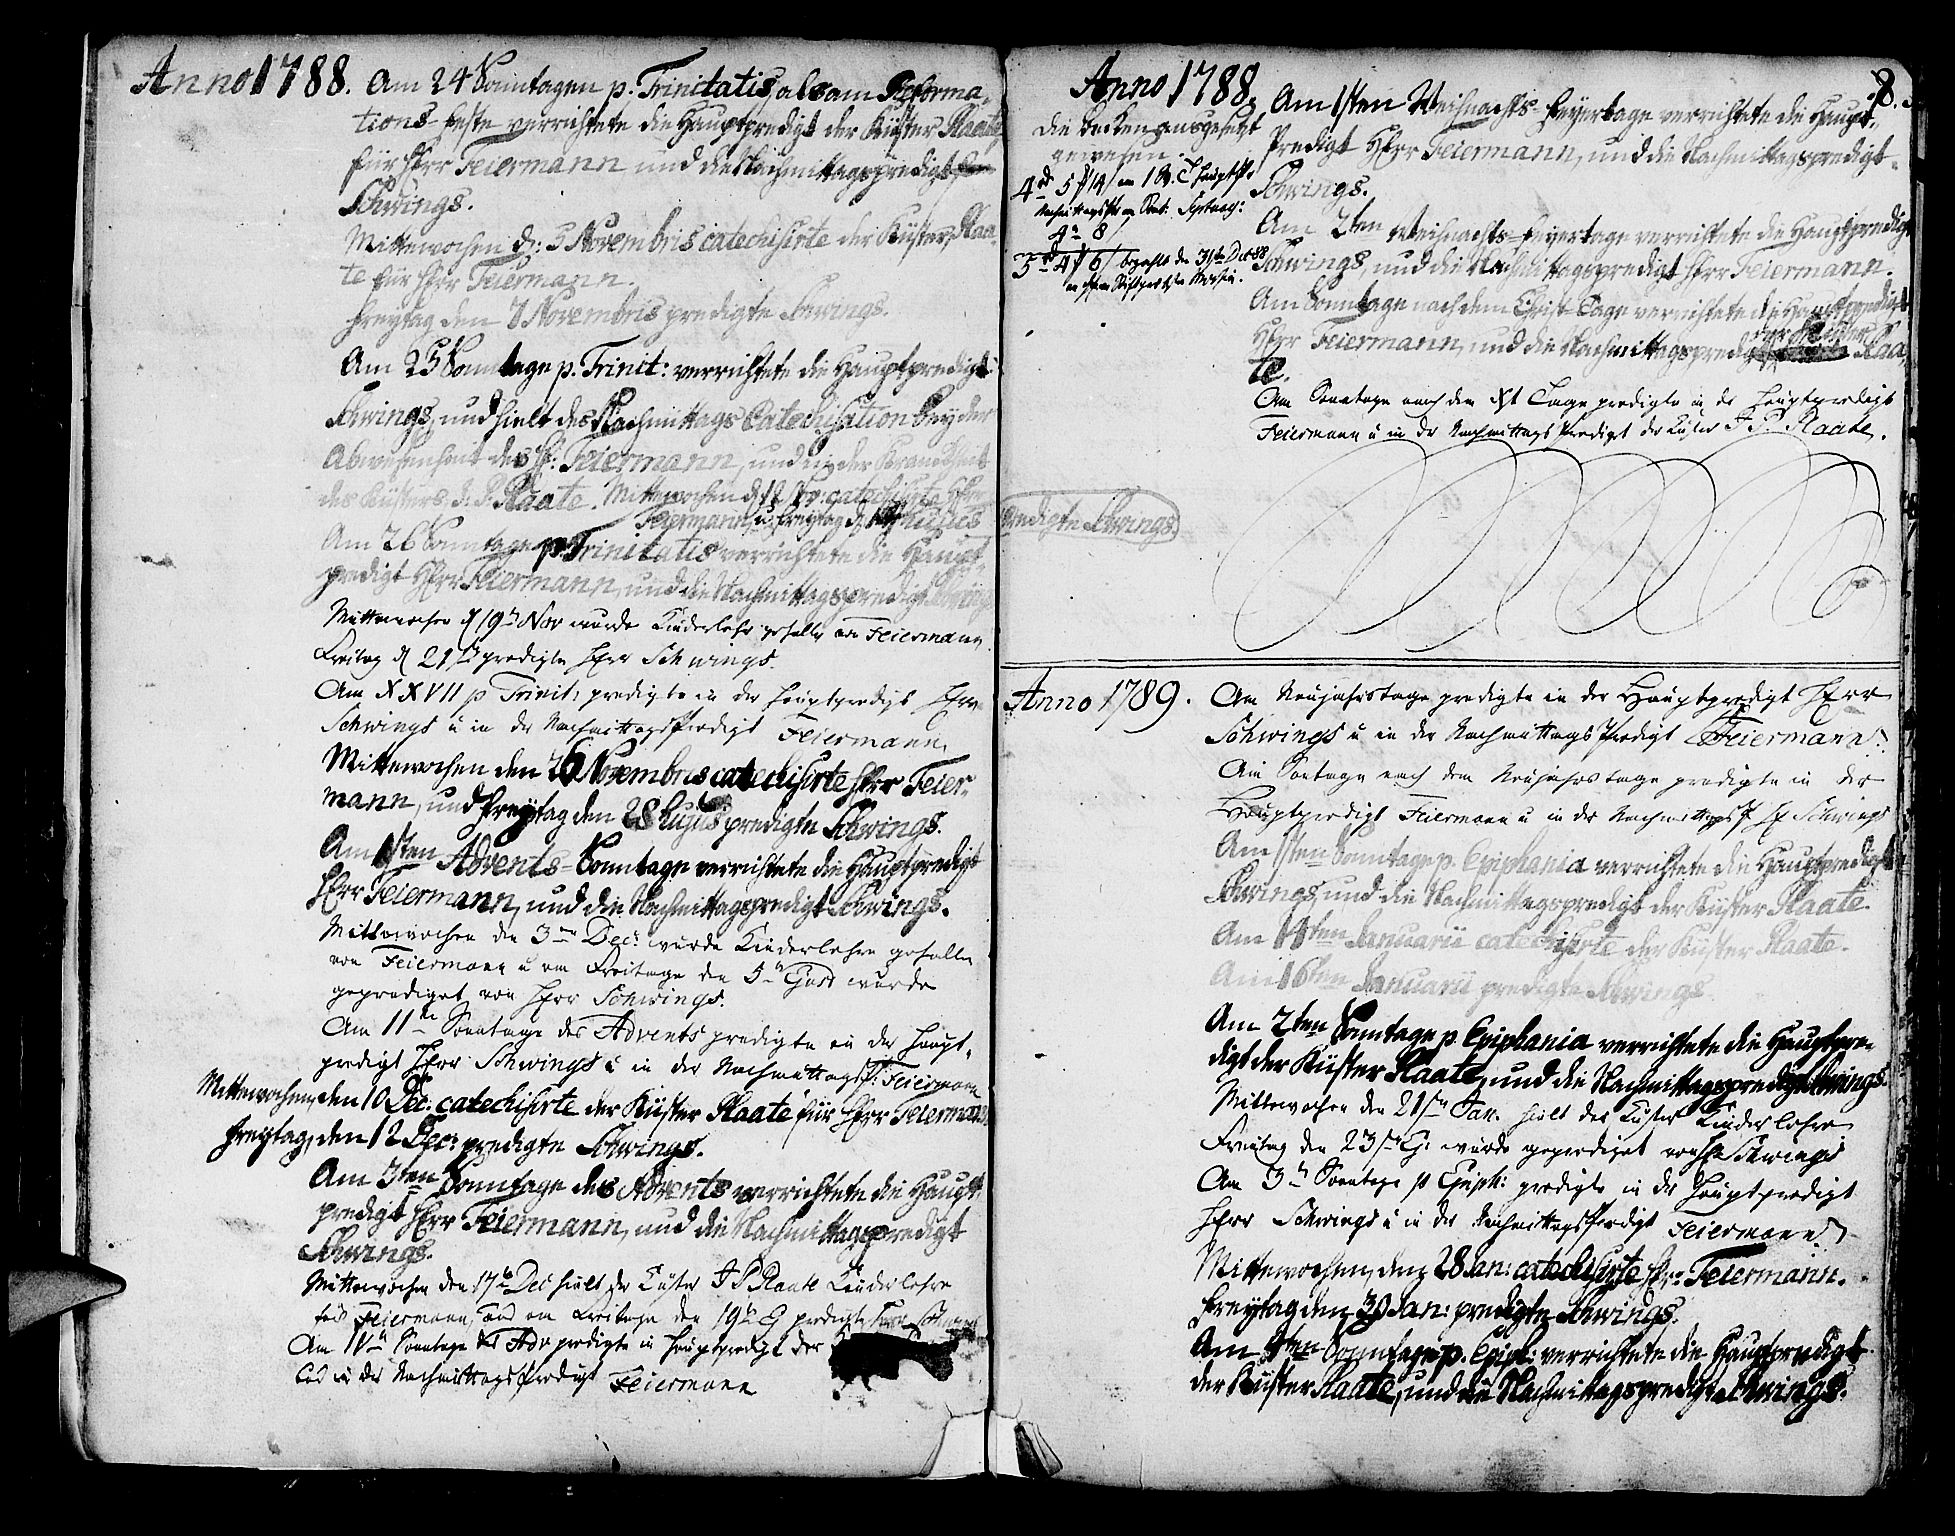 Anno 1788. Am 24 Sonntagen p. Trinitatis, als am Reforma-
tions-Feste verrichtete die Hauptpredigt der Küster Plaate
für Herr Feiermann und die Nachmittagspredigt
Schwings.
Mittewochen d: 5 Novembris catechisirte der Küster Plaa-
te für Herr Feiermann.
Freytag den 7 Novembris predigte Schwings.
Am 25 Sonntage p. Trinit: verrichtete die Hauptpredigt
Schwings, und hielt des Nachmittags Catechisation bey der
Abwesenheit des H: Feiermann, und in der Kranckheit
des Küsters J. P. Plaate. Mittewochen d. 12 Nov: catechisirte Herr
Feiermann, u. Freytag d. 14 hujus
Am 26 Sonntage p. Trinitatis verrichtete die Haupt-
predigt Herr Feiermann, und die Nachmittagspredigt Schwings
Mittewochen d 19ten Nov wurde Kinderlehr gehalten von Feiermann
Freitag d 21ten predigte Herr Schwings.
Am XXVII p Trinit: predigte in der Hauptpredigt Herr
Schwings u in der Nachmittags Predigt Feiermann.
Mittewochen den 26 Novembris catechisirte Herr Feier-
mann, und Freytag den 28 hujus predigte Schwings.
Am 1sten Advents-Sonntage verrichtete die Hauptpredigt
Herr Feiermann, und die Nachmittagspredigt Schwings.
Mittewochen den 3ten Dec: wurde Kinderlehre gehalten
von Feiermann u am Freitage den 5ten wurde
geprediget von Herr Schwings.
Am 11ten Sonntage des Advents predigte in der Haupt-
predigt Herr Schwings u in der Nachmittagsp: Feiermann
Mittewochen, den 10 Dec: catechisirte der Küster Plaate für Herr Feiermann
Freytag, den 12 Dec: predigte Schwings.
Am 3ten Sonntage des Advents verrichtete die Haupt-
predigt Herr Feiermann, und die Nachmittagspredigt
Schwings.
Mittewochen den 17ten Dec hielt der Küster J P Plaate Kinderlehre
für Feiermann, und am Freitage den 19ten predigte Herr Schwings
Am IVten Sonntage des Adv predigte in Hauptpredigt der
und in der Nachmittags Predigt Feiermann
Anno 1788. 8.
die Becken ausgesetzt
gewesen.
bezahlt den 31ten Dec 88
Am 1sten Weihnachts-Feyertage verrichtete die Haupt-
Predigt Herr Feiermann, und die Nachmittagspredigt
Schwings.
Am 2ten Weihnachts-Feyertage verrichtete die Hauptpredigt
Schwings, und die Nachmittagspredigt Herr Feiermann.
Am Sonntage nach dem Christ-Tage verrichtete die Hauptpredigt
Herr Feiermann, und die Nachmittagspredigt der Küster Plaa-
te.
Am Sonntage nach dem Tage predigte in der Hauptpredigt
Feiermann u in der Nachmittags Predigt der Küster J. P. Plaate.
predigte Schwings.
Anno 1789. Am Neujahrstage predigte in der Hauptpredigt Herr
Schwings u in der Nachmittags Predigt Feiermann.
Am Sontage nach dem Neujahrstage predigte in der
Hauptpredigt Feiermann u in der Nachmittags P H Schwings
Am 1sten Sonntage p. Epiphania verrichtete die Hauptpredigt
Schwings, und die Nachmittagspredigt der Küster Plaate.
Am 14ten Januarii catechisirte der Küster Plaate.
Am 16ten Januarii predigte Schwings
Am 2ten Sonntage p. Epiphania verrichtete die Hauptpre-
digt der Küster Plaate, und die Nachmittagspredigt Schwings.
Mittewochen den 21ten Jan. hielt der Küster Kinderlehre
Freitag den 23ten wurde geprediget von H Schwings
Am 3ten Sonntage p Epiph: predigte in der Hauptpredigt
Herr Schwings u in der Nachmittags Predigt Feiermann
Mittewochen, den 28 Jan: catechisirte Hr. Feiermann.
Freytag den 30 Jan: predigte Schwings.
Am 4ten Sonntage p. Epiph: verrichtete die Hauptpredigt
der Küster Plaate, und die Nachmittagspredigt Schwings.